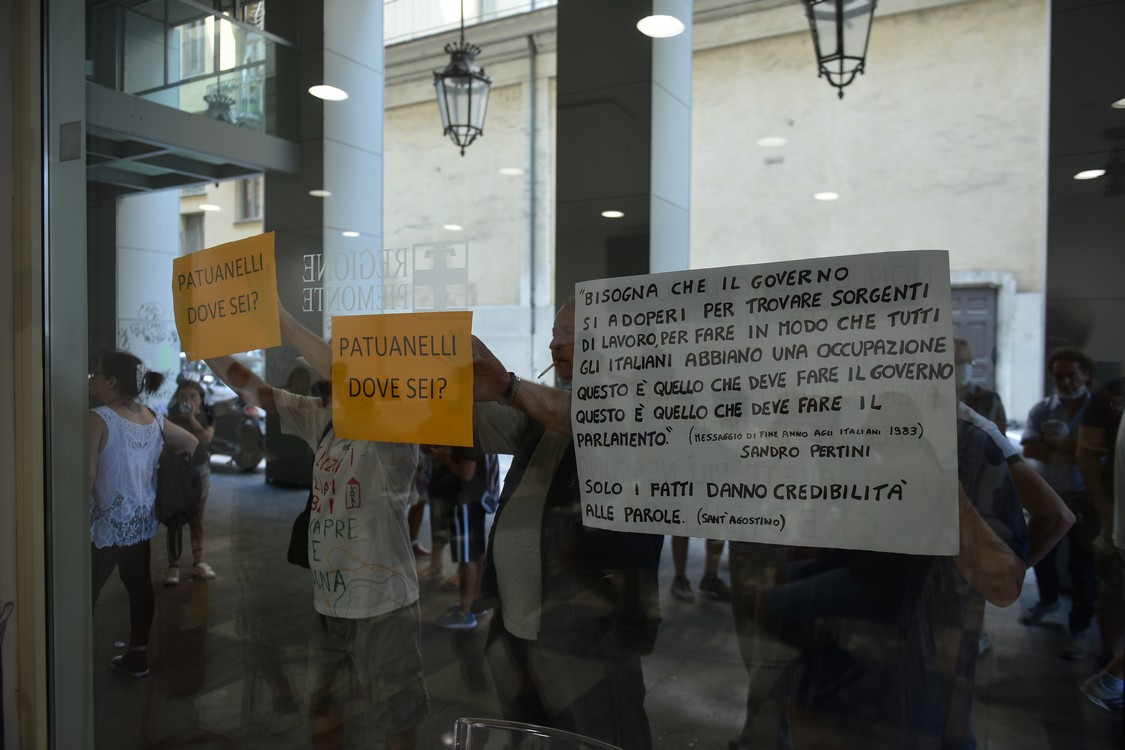 PATUANELLI
DOVE SEI?
REGIONE
PIEMONTE
PATUANELLI
DOVE SEI?
"BISOGNA CHE IL GOVERNO
SI ADOPERI PER TROVARE SORGENTI
DI LAVORO, PER FARE IN MODO CHE TUTTI
GLI ITALIANI ABBIANO UNA OCCUPAZIONE
QUESTO È QUELLO CHE DEVE FARE IL GOVERNO
QUESTO È QUELLO CHE DEVE FARE IL
PARLAMENTO." (MESSAGGIO DI FINE ANNO AGLI ITALIANI 1983)
SANDRO PERTINI
SOLO I FATTI DANNO CREDIBILITA'
ALLE PAROLE. (SANT'AGOSTINO)